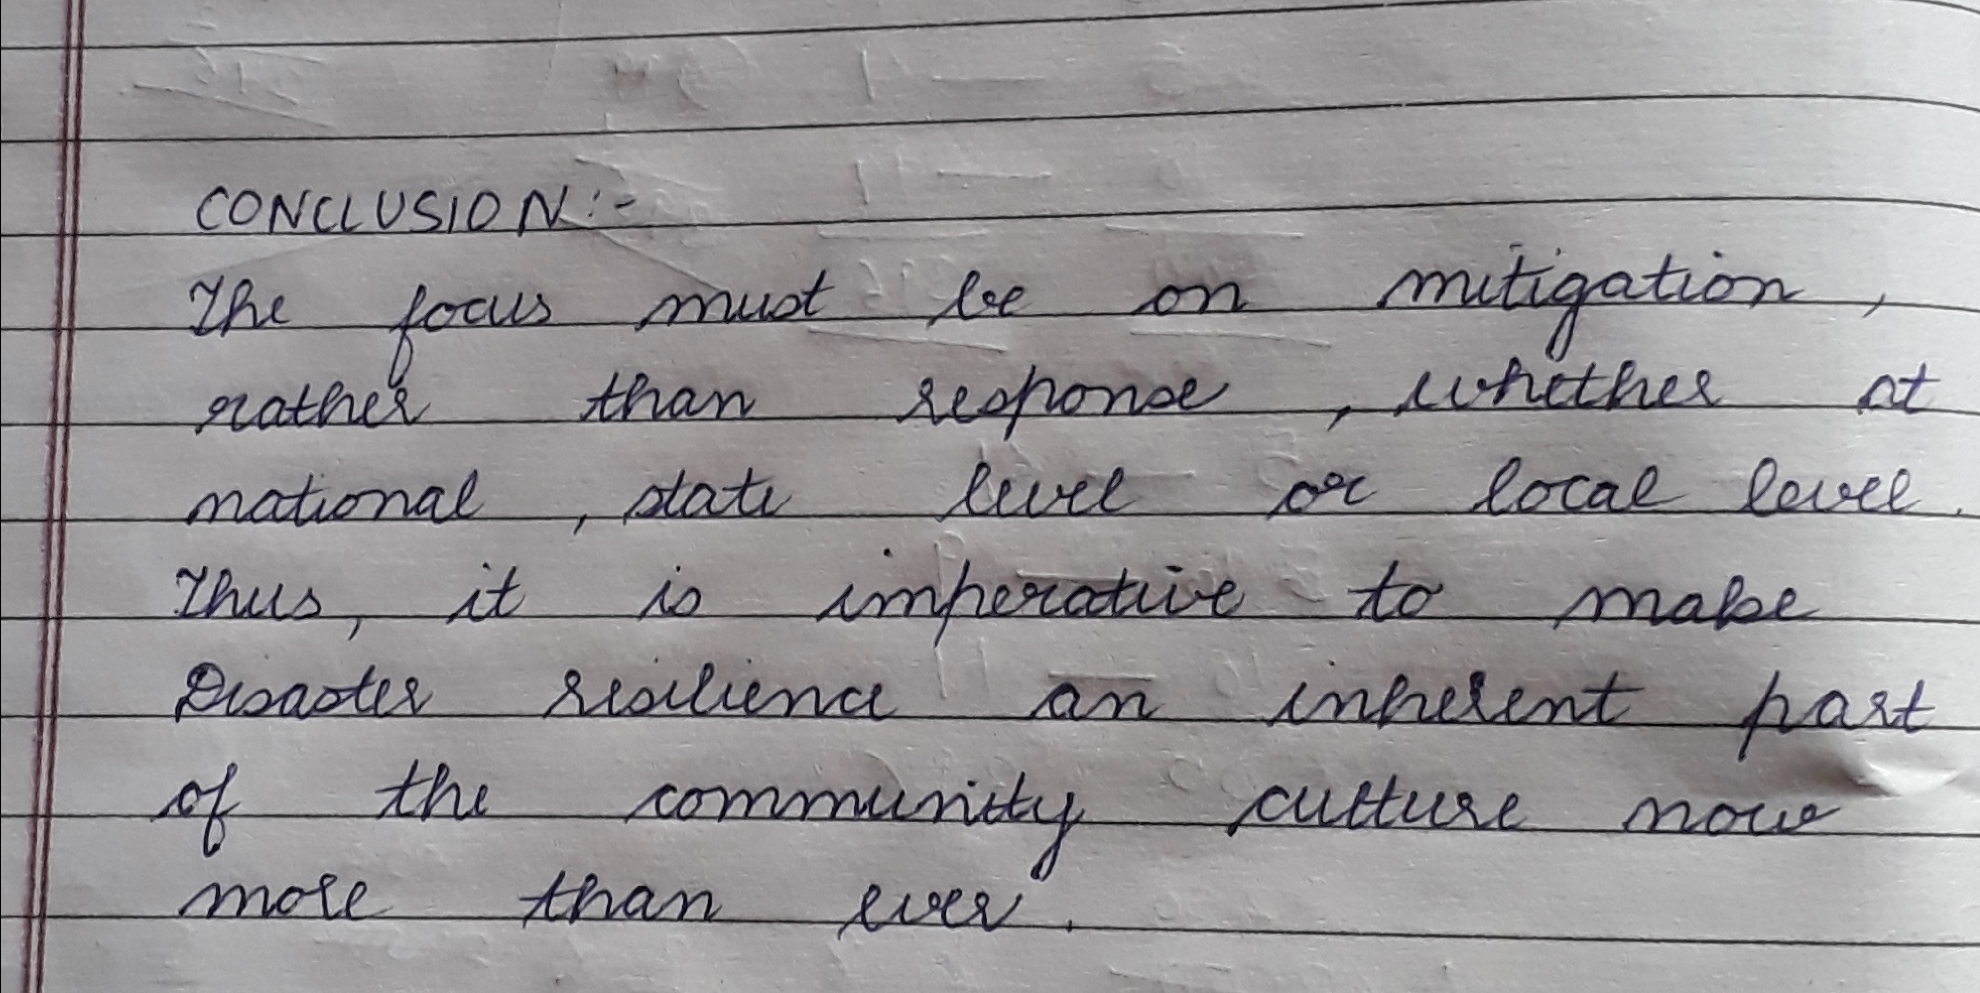 CONCLUSION:-
The focus must be on mitigation,
rather than response, whether at
national, state level or local level.
Thus, it is imperative to make
Disaster resilience an inherent part
of the community culture now
more than ever.